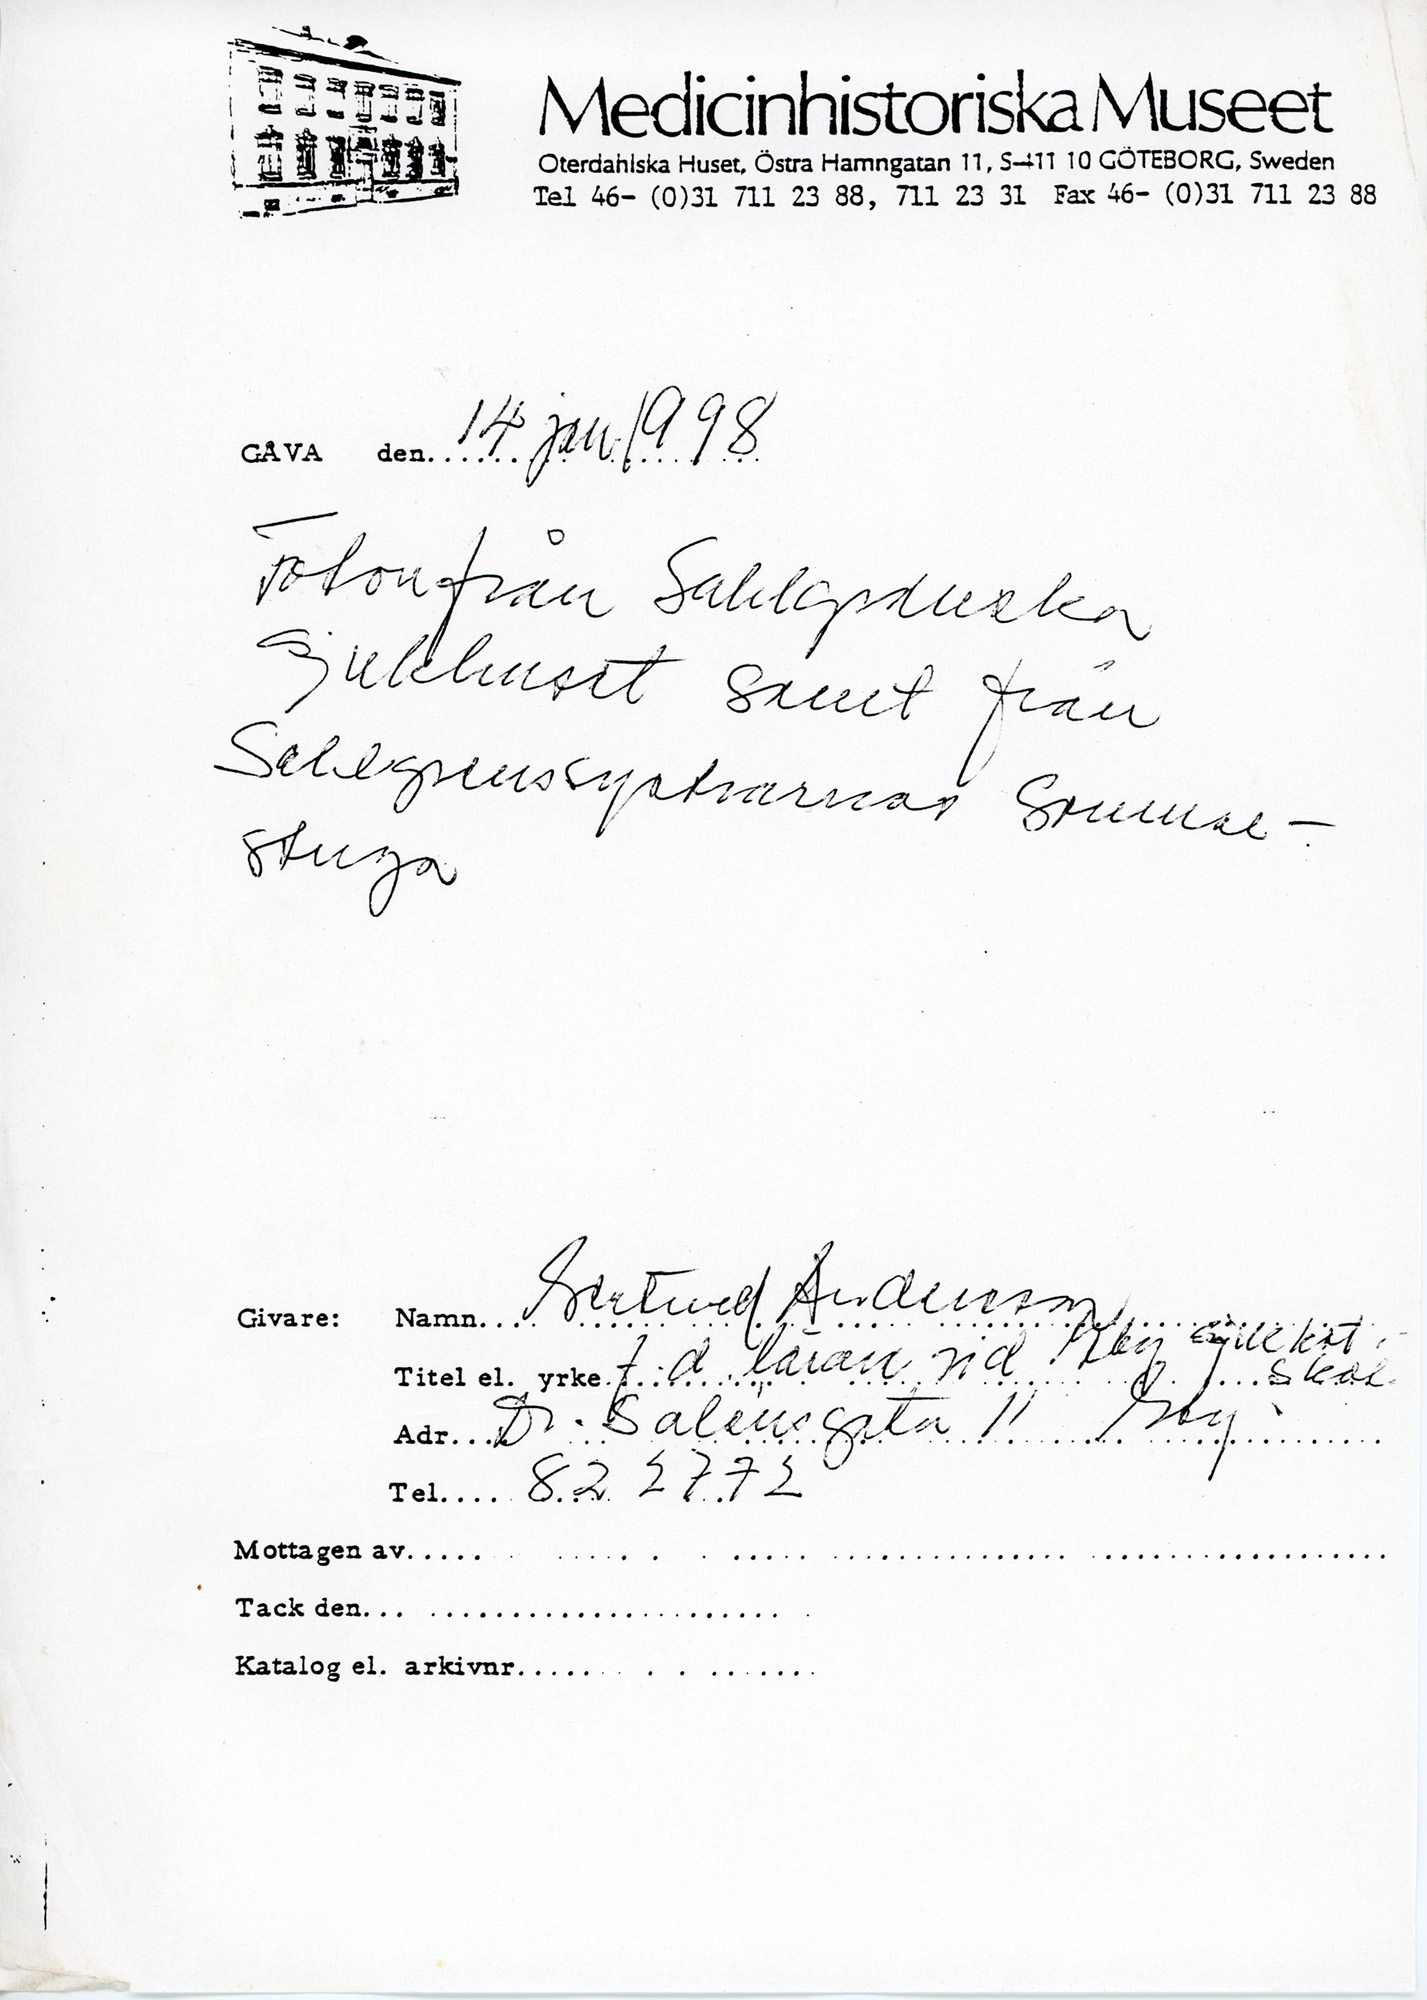 Medicinhistoriska Museet
Oterdahlska Huset, Östra Hamngatan 11, S-411 10 GÖTEBORG, Sweden
Tel 46- (0)31 711 23 88, 711 23 31 Fax 46- (0)31 711 23 88
GÅVA den 14 jan 1998
Foton från Sahlgrenska
Sjukhuset samt från
Sahlgrenssystrarnas Sommar-
stuga
Givare: Namn Gertrud Andersson
Titel el. yrke f.d. läran vid Gbg sjukskt.
skol.
Adr. Dr. Saléns gata 11 Gbg.
Tel. 82 2772
Mottagen av
Tack den
Katalog el. arkivnr